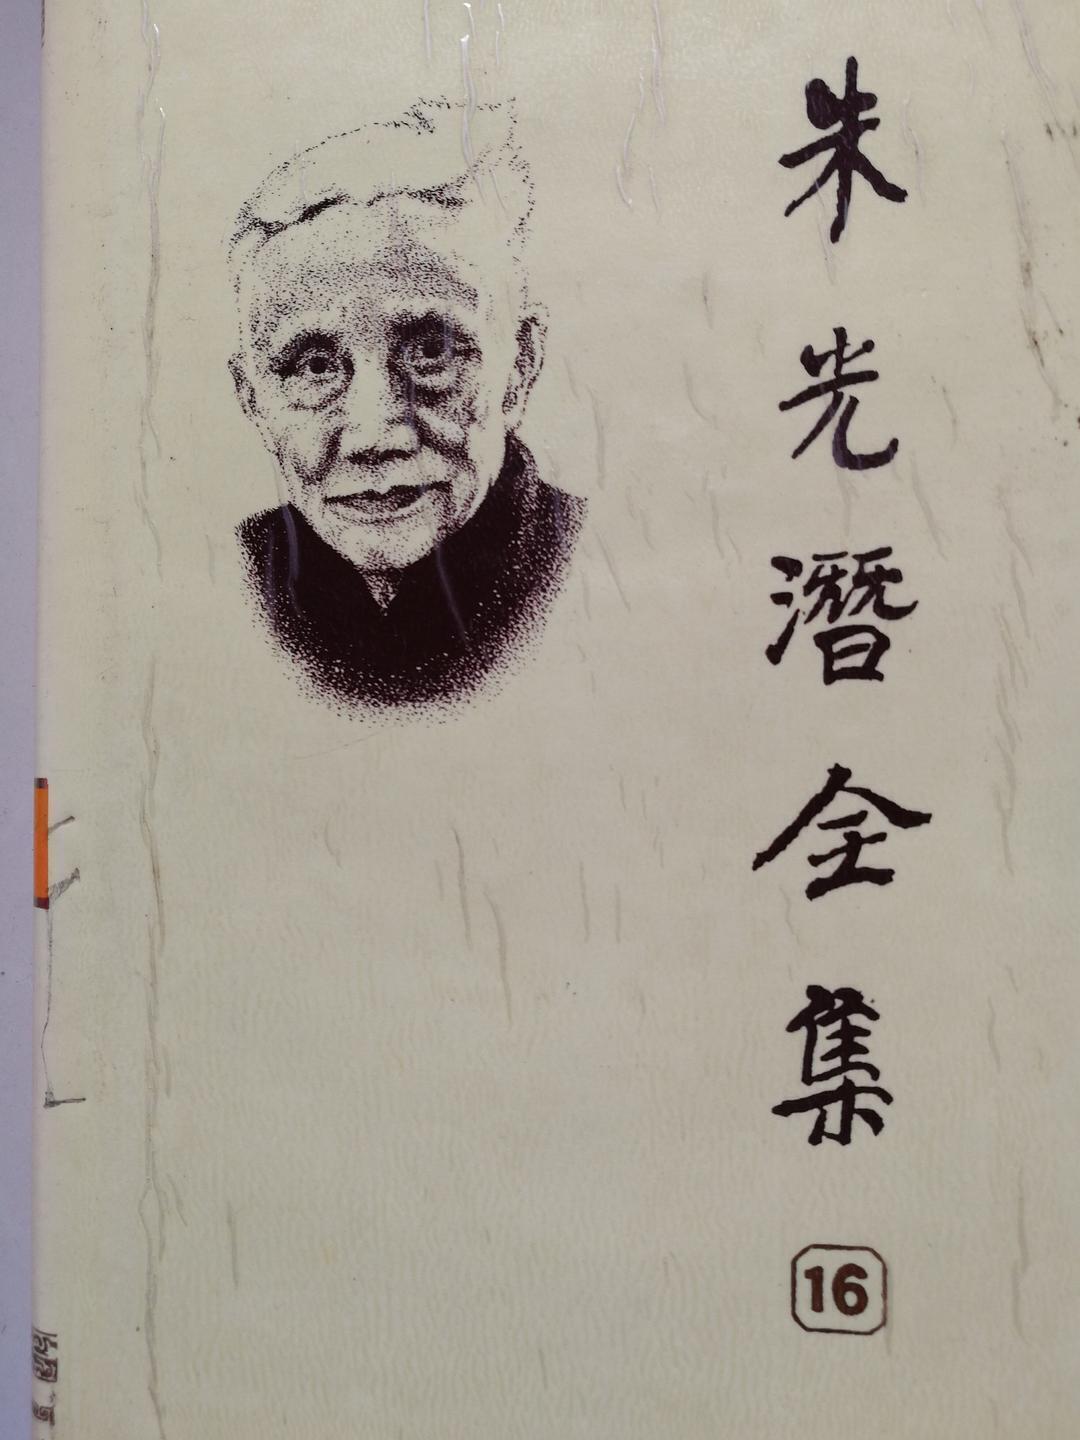 朱光潜全集
16